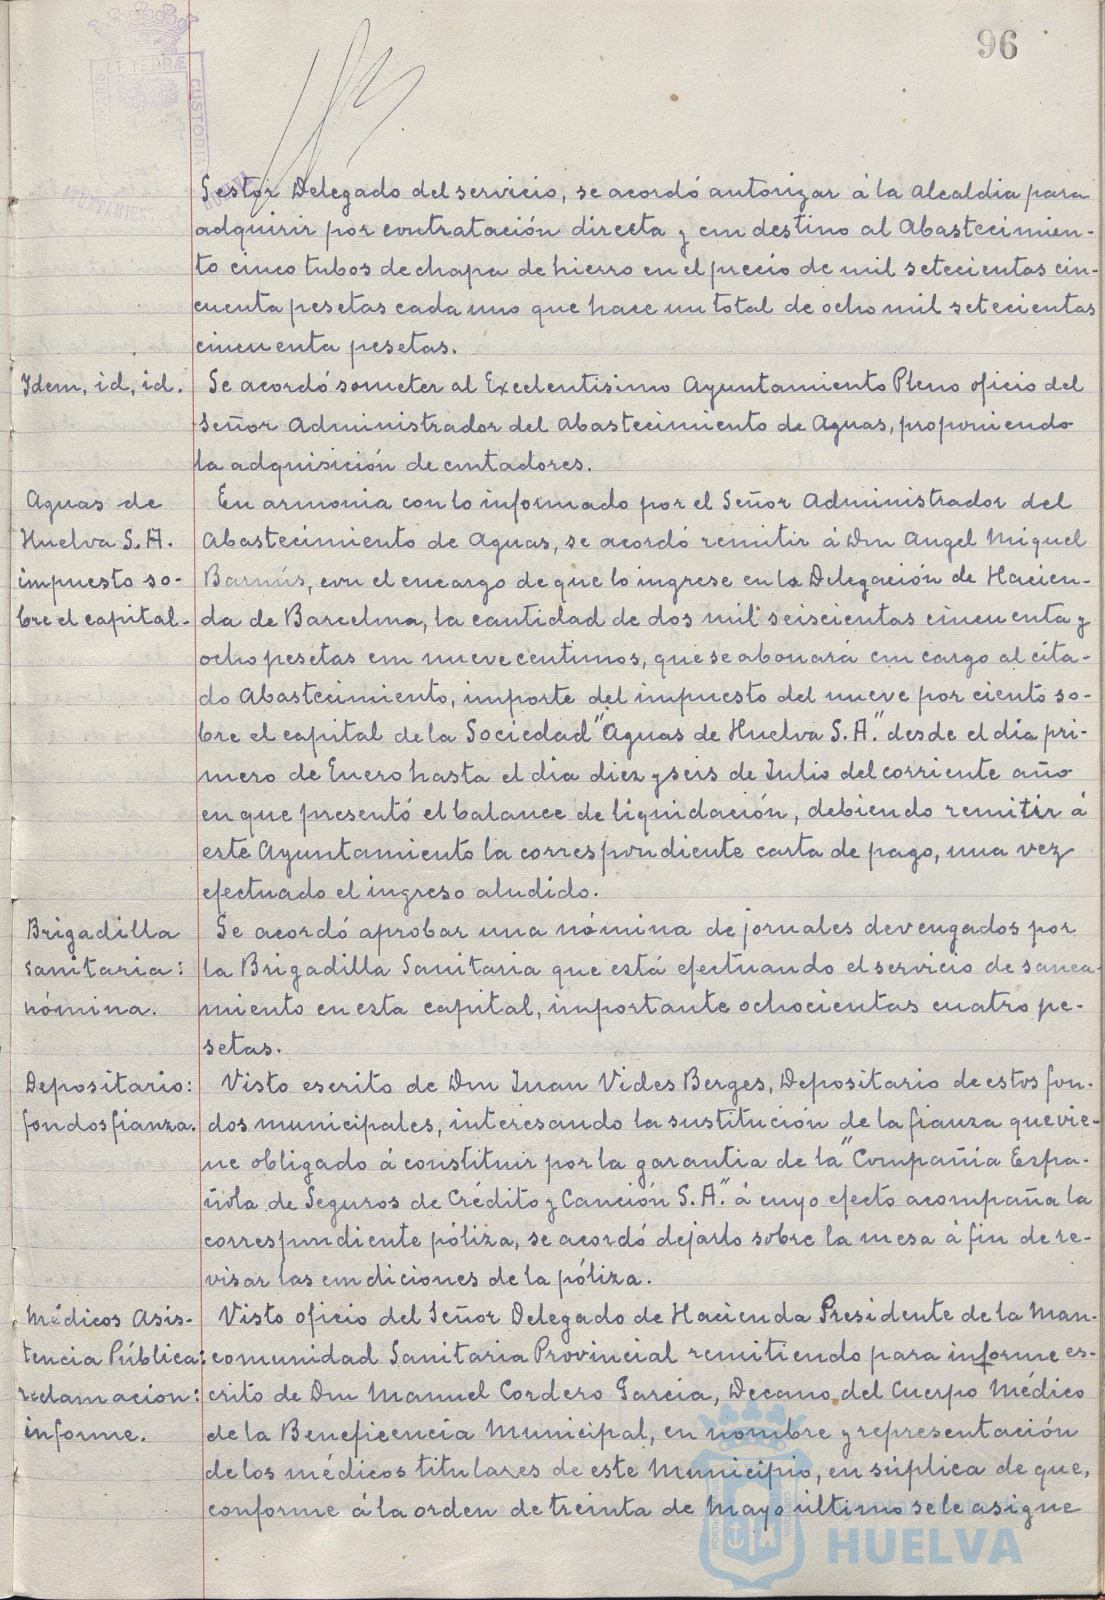 96
Gestor Delegado del servicio, se acordó autorizar á la Alcaldia para
adquirir por contratación directa y con destino al Abastecimien-
to cinco tubos de chapa de hierro en el precio de mil setecientas cin-
cuenta pesetas cada uno que hace un total de ocho mil setecientas
cincuenta pesetas.
Idem, id, id.
Se acordó someter al Excelentisimo Ayuntamiento Pleno oficio del
Señor Administrador del Abastecimiento de Aguas, proponiendo
la adquisición de contadores.
Aguas de
Huelva S.A.
impuesto so-
bre el capital-
En armonia con lo informado por el Señor Administrador del
Abastecimiento de Aguas, se acordó remitir á Don Angel Miguel
Barnús, con el encargo de que lo ingrese en la Delegación de Hacien-
da de Barcelona, la cantidad de dos mil seiscientas cincuenta y
ocho pesetas con nueve centimos, que se abonará con cargo al cita-
do Abastecimiento, importe del impuesto del nueve por ciento so-
bre el capital de la Sociedad "Aguas de Huelva S.A." desde el dia pri-
mero de Enero hasta el dia diez y seis de Julio del corriente año
en que presentó el balance de liquidación, debiendo remitir á
este Ayuntamiento la correspondiente carta de pago, una vez
efectuado el ingreso aludido.
Brigadilla
sanitaria:
nómina.
Se acordó aprobar una nómina de jornales devengados por
la Brigadilla Sanitaria que está efectuando el servicio de sanea-
miento en esta capital, importante ochocientas cuatro pe-
setas.
Depositario:
fondos fianza.
Visto escrito de Don Juan Vides Berges, Depositario de estos fon-
dos municipales, interesando la sustitución de la fianza que vie-
ne obligado á constituir por la garantia de la "Compañia Espa-
ñola de Seguros de Crédito y Caución S.A." á cuyo efecto acompaña la
correspondiente póliza, se acordó dejarlo sobre la mesa á fin de re-
visar las condiciones de la póliza.
Médicos Asis-
tencia Pública:
reclamación:
informe.
Visto oficio del Señor Delegado de Hacienda Presidente de la Man-
comunidad Sanitaria Provincial remitiendo para informe es-
crito de Don Manuel Cordero Garcia, Decano del Cuerpo Médico
de la Beneficencia Municipal, en nombre y representación
de los médicos titulares de este Municipio, en súplica de que,
conforme á la orden de treinta de Mayo último se le asigne
HUELVA